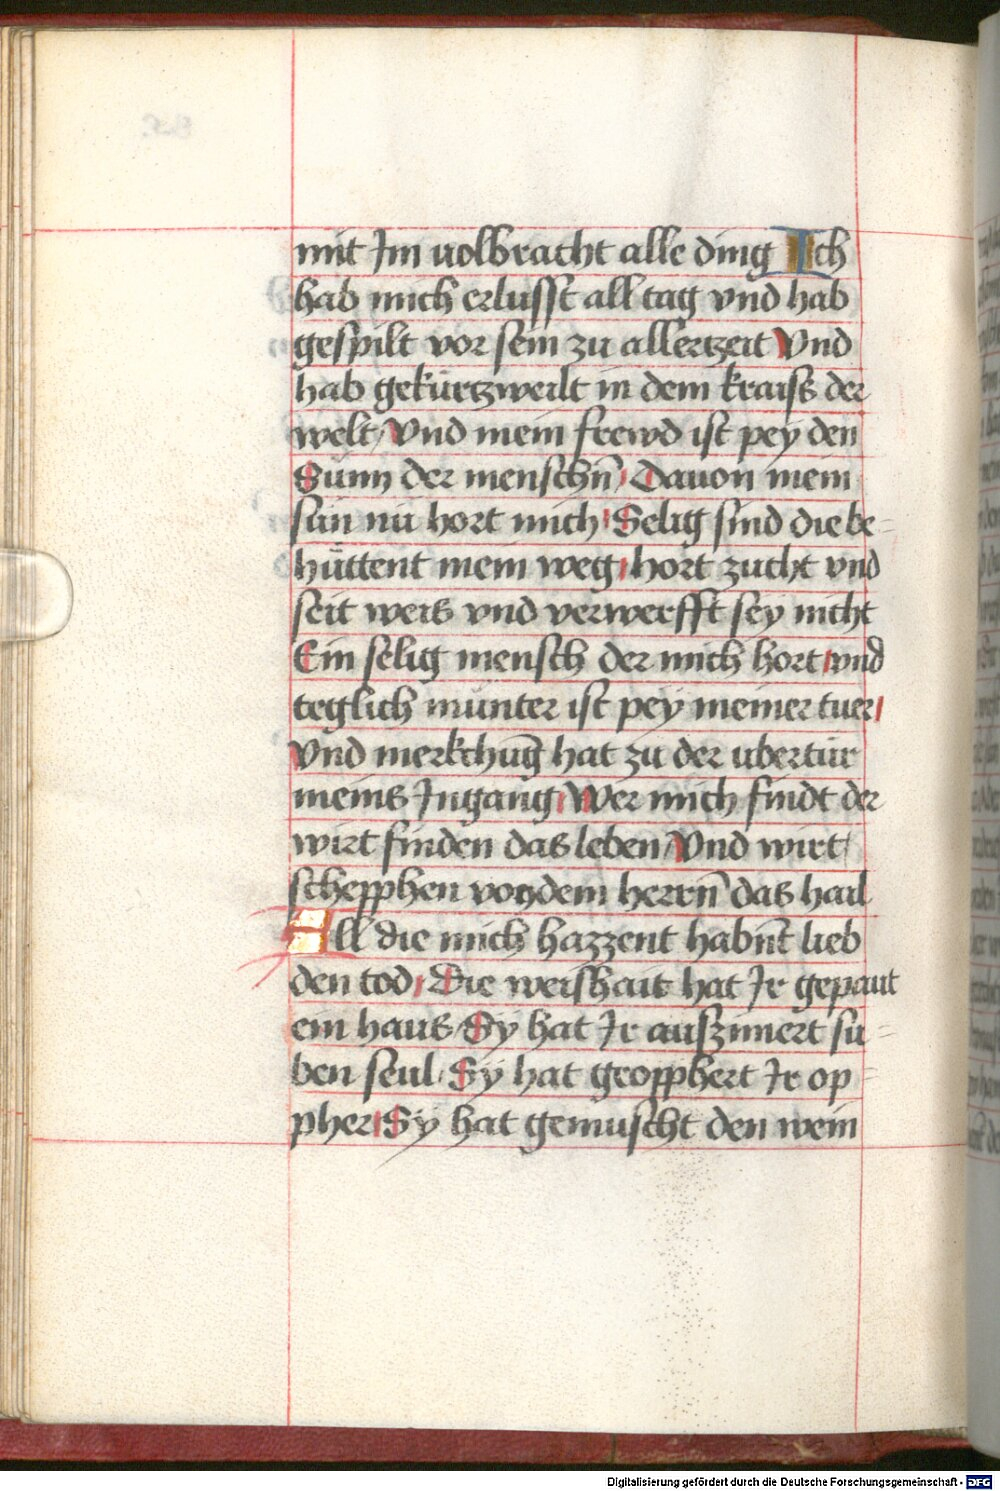 mit Im uolbracht alle ding Ich
hab mich erlusst all tag vnd hab
gespilt vor sein zu allertzeit Vnd
hab gekürtzweilt in dem kraiss der
welt Vnd mein frewd ist pey den
Sünn der menschñ Dauon mein
sün nü hort mich Selig sind die be-
hüttent mein weg hort zucht vnd
seit weis vnd verwerfft sey nicht
Ein selig mensch der mich hort vnd
teglich münter ist pey meiner tuer
Vnd merkchũg hat zu der ubertür
meins Ingang Wer mich findt der
wirt finden das leben Vnd wirt
schepphen von dem herrñ das hail
All die mich hazzent habnt̃ lieb
den tod Die weishait hat Ir gepaut
ein haus Sy hat Ir auszimert su-
ben seul Sy hat geopphert Ir op-
pher Sy hat gemuscht den wein
Digitalisierung gefördert durch die Deutsche Forschungsgemeinschaft - DFG